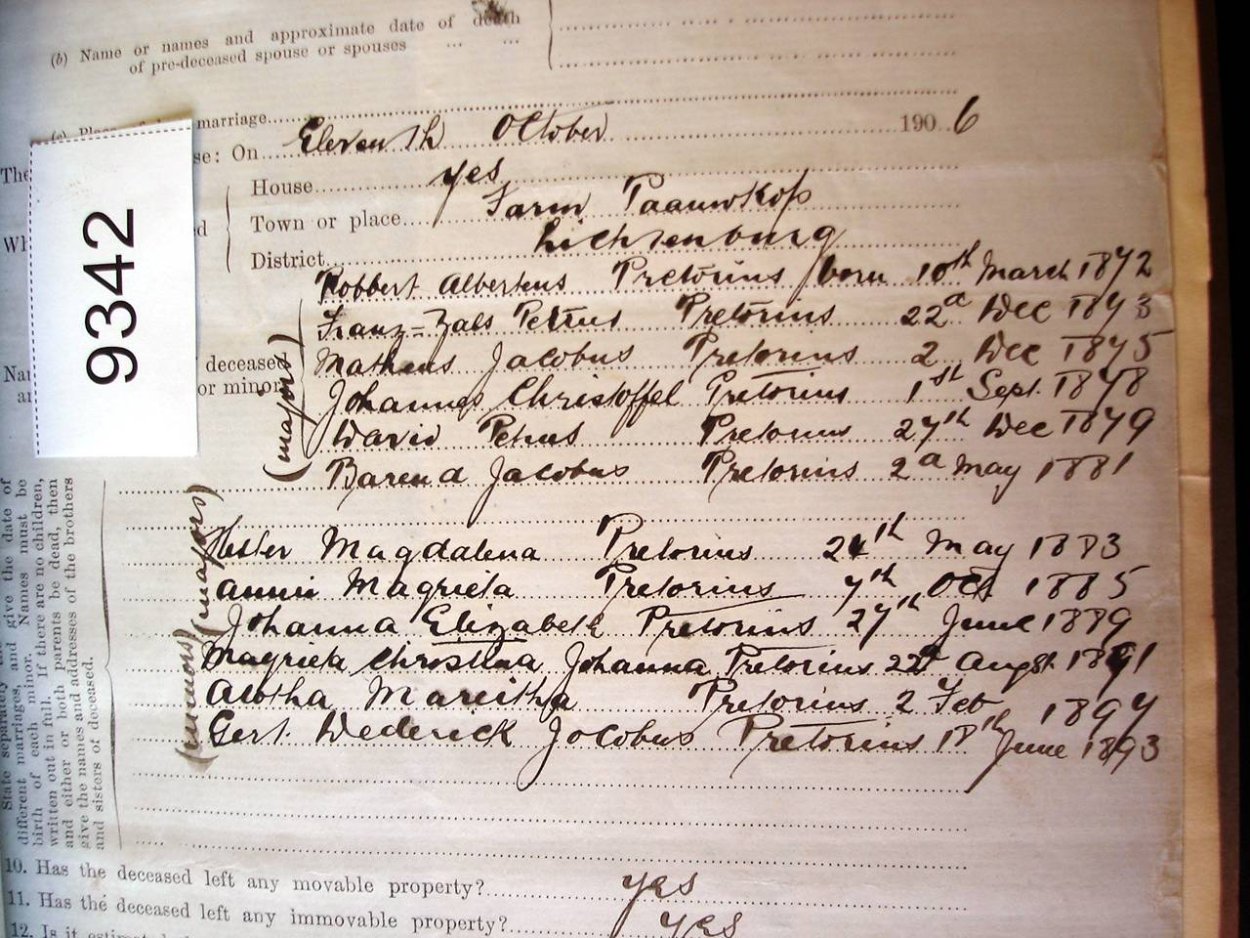 (b) Name or names and approximate date of death
of pre-deceased spouse or spouses ... ...
marriage
se: On Eleventh October 1906
The
House yes
Town or place Farm Paauwkop
Wh
d
District Lichtenburg
9342
Robbert Albertus Pretorius born 10th March 1872
Petrus Pretorius 22d Dec 1873
deceased
Nar
or minor
(majors)
Matheus Jacobus Pretorius 2 Dec 1875
Johannes Christoffel Pretorius 1st Sept. 1878
David Petrus Pretorius 27th Dec 1879
Barend Jacobus Pretorius 2d May 1881
(majors)
Hester Magdalena Pretorius 24th May 1883
Annie Magrieta Pretorius 7th Oct 1885
(minors)
Johanna Elizabeth Pretorius 27th June 1889
Magrieta Christina Johanna Pretorius 22d Augst 1891
Pretorius 2 Feb 1894
Gert Dederick Jacobus Pretorius 18th June 1893
State separately the
different marriages, and give the date of
birth of each minor. Names must be
written out in full. If there are no children,
and either or both parents be dead, then
give the names and addresses of the brothers
and sisters of deceased.
10. Has the deceased left any movable property? yes
11. Has the deceased left any immovable property? yes
12. Is it estimated